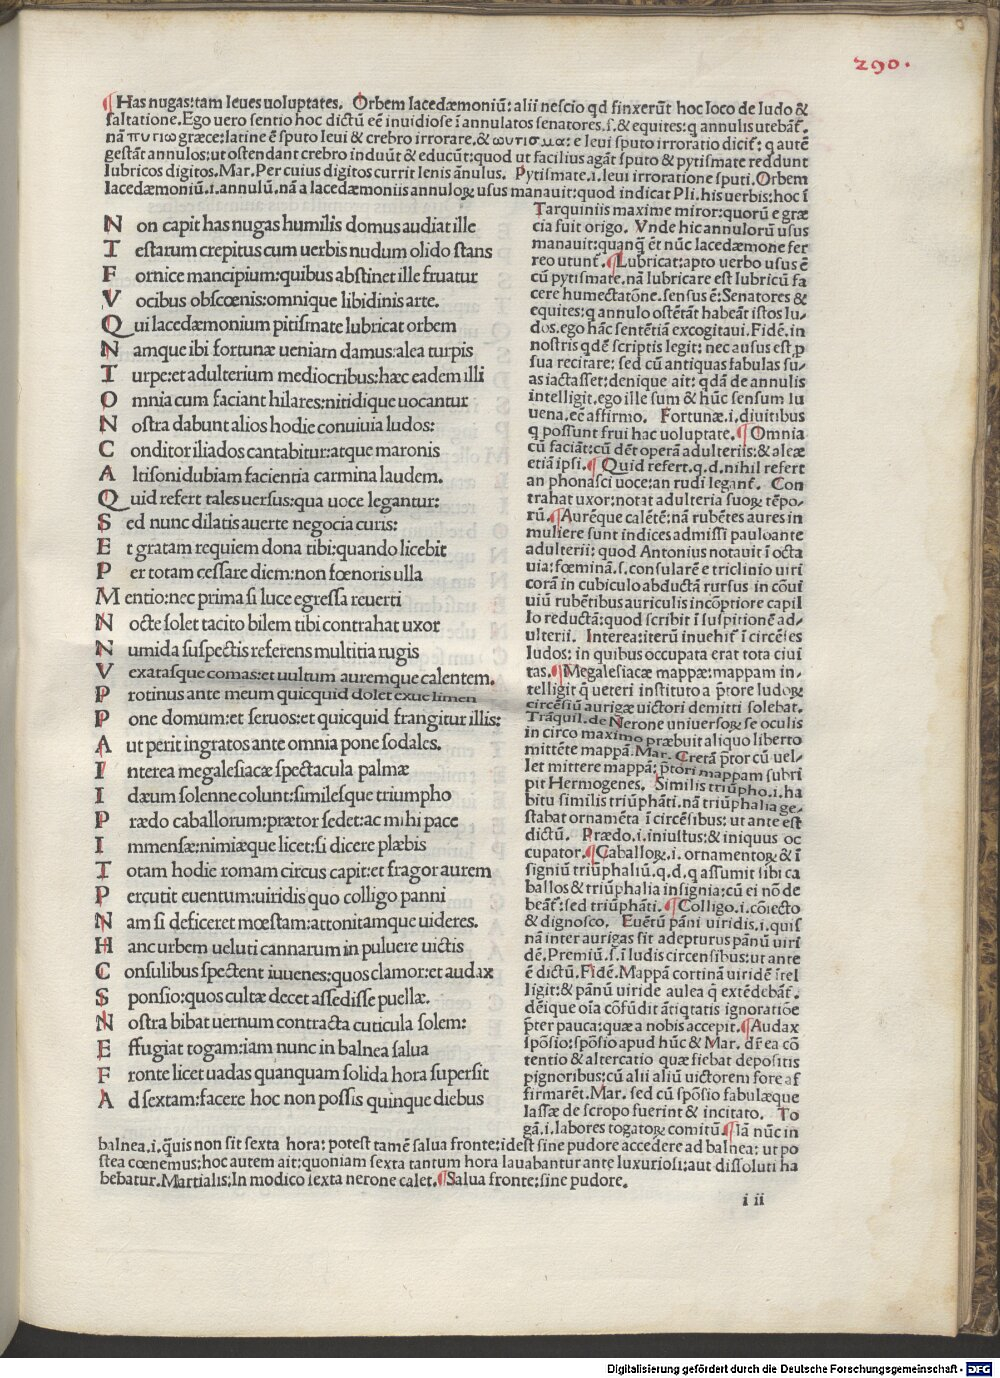 290.
¶Has nugas:tam leues uoluptates. Orbem lacedæmoniũ: alii nescio qd finxerũt hoc loco de ludo &
saltatione.Ego uero sentio hoc dictũ eẽ inuidiose ĩ annulatos senatores.s.& equites:q annulis utebãt̃.
nã πυτιω græce:latine ẽ sputo leui & crebro irrorare.& ωυτισμα: e leui sputo irroratio dicit̃: q autẽ
gestãt annulos:ut ostendant crebro induũt & educũt:quod ut facilius agãt sputo & pytismate reddunt
lubricos digitos.Mar.Per cuius digitos currit lenis ãnulus. Pytismate.i.leui irroratione sputi.Orbem
lacedæmoniũ.i.annulũ.nã a lacedæmoniis annuloꝝ usus manauit:quod indicat Pli.his uerbis:hoc ĩ
N on capit has nugas humilis domus audiat ille
T estarum crepitus cum uerbis nudum olido stans
F ornice mancipium:quibus abstinet ille fruatur
V ocibus obscœnis:omnique libidinis arte.
Q ui lacedæmonium pitismate lubricat orbem
N amque ibi fortunæ ueniam damus:alea turpis
T urpe:et adulterium mediocribus:hæc eadem illi
O mnia cum faciant hilares:nitidique uocantur
N ostra dabunt alios hodie conuiuia ludos:
C onditor iliados cantabitur:atque maronis
A ltisoni dubiam facientia carmina laudem.
Q uid refert tales uersus:qua uoce legantur:
S ed nunc dilatis auerte negocia curis:
E t gratam requiem dona tibi:quando licebit
P er totam cessare diem:non fœnoris ulla
M entio:nec prima si luce egressa reuerti
N octe solet tacito bilem tibi contrahat uxor
N umida suspectis referens multitia rugis
V exatasque comas:et uultum auremque calentem.
P rotinus ante meum quicquid dolet exue limen
P one domum:et seruos:et quicquid frangitur illis:
A ut perit ingratos ante omnia pone sodales.
I nterea megalesiacæ spectacula palmæ
I dæum solenne colunt:similesque triumpho
P rædo caballorum:prætor sedet:ac mihi pace
I mmensæ:nimiæque licet:si dicere plæbis
T otam hodie romam circus capit:et fragor aurem
P ercutit euentum:uiridis quo colligo panni
N am si deficeret mœstam:attonitamque uideres.
H anc urbem ueluti cannarum in puluere uictis
C onsulibus spectent iuuenes:quos clamor:et audax
S ponsio:quos cultæ decet assedisse puellæ.
N ostra bibat uernum contracta cuticula solem:
E ffugiat togam:iam nunc in balnea salua
F ronte licet uadas quanquam solida hora supersit
A d sextam:facere hoc non possis quinque diebus
Tarquiniis maxime miror:quorũ e græ
cia fuit origo. Vnde hic annulorũ usus
manauit:quanq̃ ẽt nũc lacedæmone fer
reo utunt̃.¶Lubricat:apto uerbo usus ẽ
cũ pytismate.nã lubricare est lubricũ fa
cere humectatõne.sensus ẽ:Senatores &
equites:q annulo ostẽtãt habeãt istos lu-
dos.ego hãc sentẽtiã excogitaui.Fidẽ.in
nostris qdẽ scriptis legit: nec ausus est ꝓ
sua recitare: sed cũ antiquas fabulas su-
as iactasset:denique ait: qdã de annulis
intelligit.ego ille sum & hũc sensum Iu
uena.eẽ affirmo. Fortunæ.i.diuitibus
q possunt frui hac uoluptate.¶Omnia
cũ faciãt:cũ dẽt operã adulteriis:& aleæ
etiã ipsi.¶Quid refert.q.d.nihil refert
an phonasci uoce:an rudi legant̃. Con
trahat uxor:notat adulteria suoꝝ tẽpo-
rũ.¶Aurẽque calẽtẽ:nã rubẽtes aures in
muliere sunt indices admissi pauloante
adulterii: quod Antonius notauit ĩ octa
uia:fœminã.s.consularẽ e triclinio uiri
corã in cubiculo abductã rursus in cõui
uiũ rubẽtibus auriculis incõptiore capil
lo reductã:quod scribit ĩ suspitionẽ ad-
ulterii. Interea:iterũ inuehit̃ ĩ circẽses
ludos: in quibus occupata erat tota ciui
tas.¶Megalesiacæ mappæ:mappam in-
telligit q̃ ueteri instituto a p̃tore ludoꝝ
circẽsiũ aurigæ uictori demitti solebat.
Trãquil.de Nerone uniuersoꝝ se oculis
in circo maximo præbuit aliquo liberto
mittẽte mappã.Mar. Cretã p̃tor cũ uel-
let mittere mappã: p̃tori mappam subri
pit Hermogenes. Similis triũpho.i.ha
bitu similis triũphãti.nã triũphalia ge-
stabat ornamẽta ĩ circẽsibus: ut ante est
dictũ. Prædo.i.iniustus:& iniquus oc
cupator.¶Caballoꝝ.i.ornamentoꝝ & ĩ
signiũ triũphaliũ.q.d.q assumit sibi ca
ballos & triũphalia insignia:cũ ei nõ de
beãt̃:sed triũphãti.¶Colligo.i.cõiecto
& dignosco. Euẽtũ pãni uiridis.i.quis
nã inter aurigas sit adepturus pãnũ uiri
dẽ.Premiũ.s.ĩ ludis circensibus:ut ante
ẽ dictũ.Fidẽ.Mappã cortinã uiridẽ ĩtel
ligit:& pãnũ uiride aulea q̃ extẽdebãt̃.
dẽique oĩa cõfũdit ãtiqtatis ignoratiõe
p̃ter pauca:quæ a nobis accepit.¶Audax
spõsio:spõsio apud hũc & Mar. dr̃ ea cõ
tentio & altercatio quæ fiebat depositis
pignoribus:cũ alii aliũ uictorem fore af
firmarẽt.Mar. sed cũ spõsio fabulæque
lassæ de scropo fuerint & incitato. To
gã.i.labores togatoꝝ comitũ.¶Iã nũc in
balnea.i.q̃uis non sit sexta hora: potest tamẽ salua fronte:idest sine pudore accedere ad balnea: ut po
stea cœnemus:hoc autem ait:quoniam sexta tantum hora lauabantur ante luxuriosi:aut dissoluti ha
bebatur.Martialis:In modico sexta nerone calet.¶Salua fronte:sine pudore.
i ii
Digitalisierung gefördert durch die Deutsche Forschungsgemeinschaft - DFG